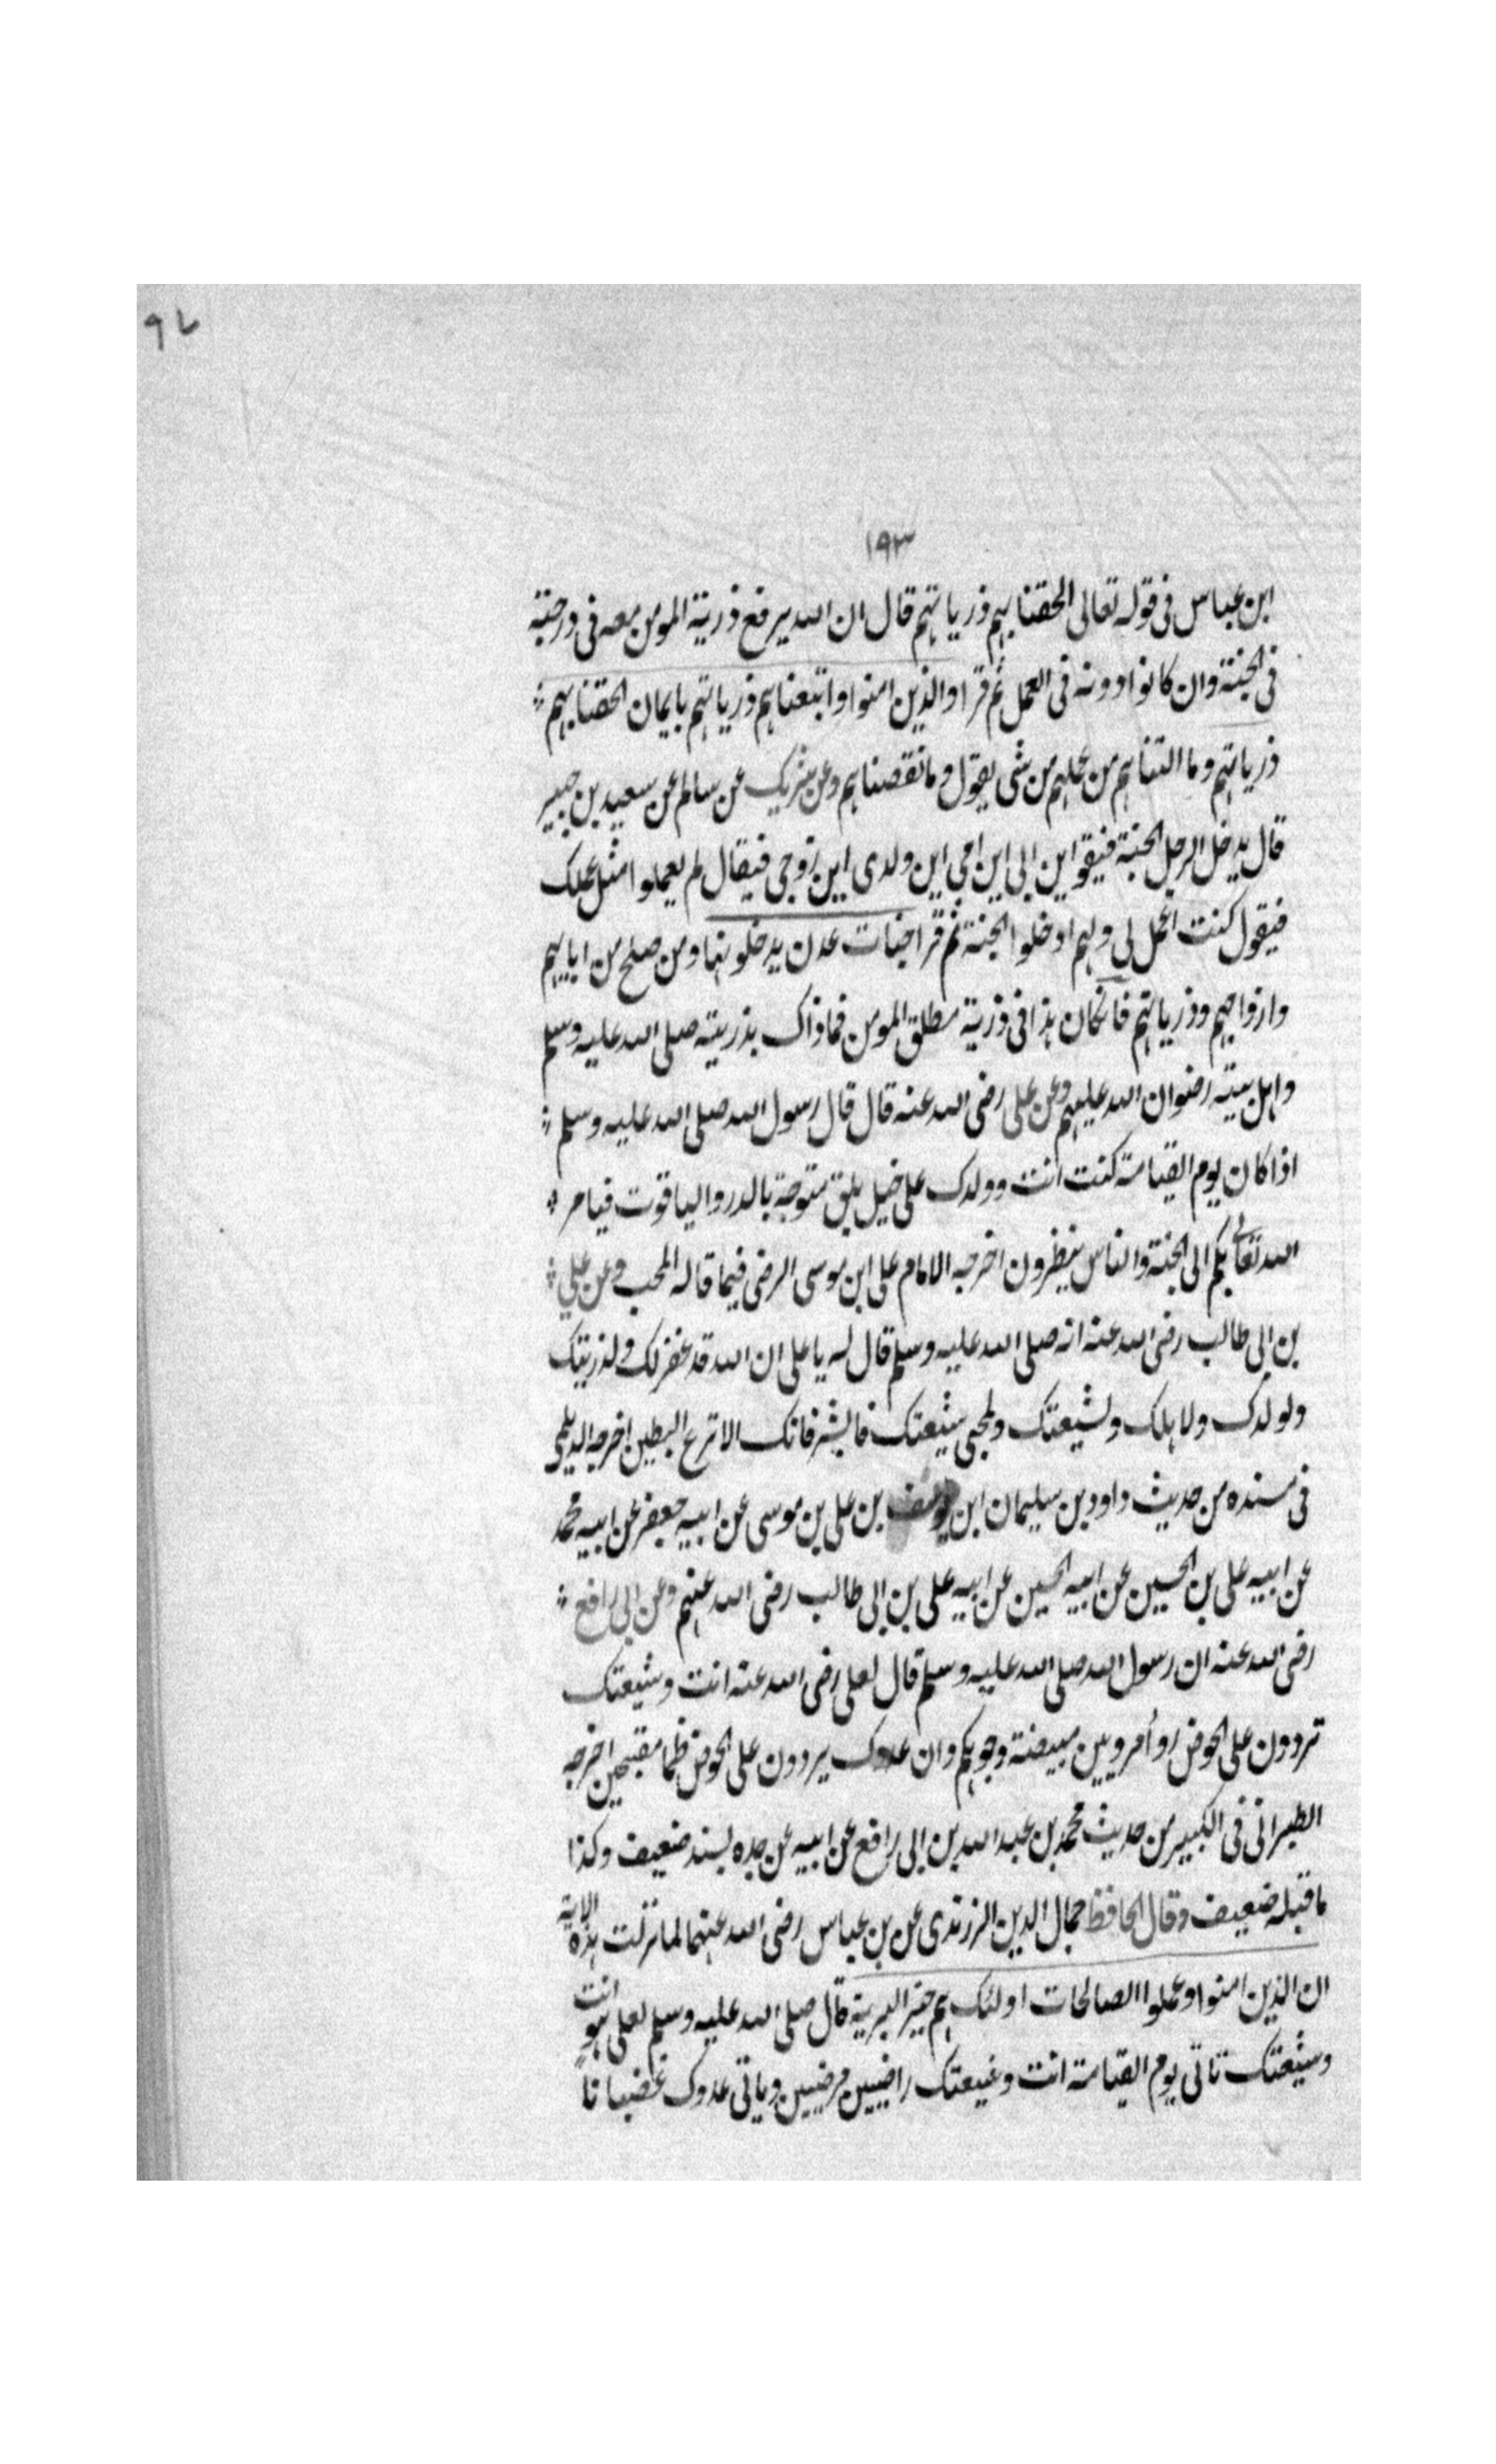 ٩٧
١٩٣
ابن عباس فى قوله تعالى الحقنا بهم ذرياتهم قال ان الله يرفع ذرية المومن معه فى درجته
فى الجنة وان كانوا دونه فى العمل ثم قرا والذين امنوا واتبعناهم ذرياتهم بايمان الحقنا بهم
ذرياتهم وما التناهم من عملهم من شى يقول وما نقصناهم وعن شريك عن سالم عن سعيد بن جبير
قال يدخل الرجل الجنة فيقو اين ابى اين امى اين ولدى اين زوجى فيقال لم يعملوا مثل عملك
فيقول كنت اعمل لى ولهم ادخلوا الجنة ثم قرا جنات عدن يدخلونها ومن صلح من ابايهم
وازواجهم وذرياتهم فانكان هذا فى ذرية مطلق المومن فماذاك بذريته صلى الله عليه وسلم
واهل بيته رضوان الله عليهم وعن على رضى الله عنه قال قال رسول الله صلى الله عليه وسلم
اذا كان يوم القيامة كنت انت وولدك على خيل بلق متوجة بالدر والياقوت فيامر
الله تعالى بكم الى الجنة والناس ينظرون اخرجه الامام على ابن موسى الرضى فيما قاله المحب وعن على
بن ابى طالب رضى الله عنه انه صلى الله عليه وسلم قال له يا على ان الله قد غفر لك ولذريتك
ولولدك ولاهلك ولشيعتك ولمحبى شيعتك فابشر فانك الانزع البطين اخرجه الديلمى
فى مسنده من حديث داود بن سليمان ابن يوسف بن على بن موسى عن ابيه جعفر عن ابيه محمد
عن ابيه على بن الحسين عن ابيه الحسين عن ابيه على بن ابى طالب رضى الله عنهم وعن ابى رافع
رضى الله عنه ان رسول الله صلى الله عليه وسلم قال لعلى رضى الله عنه انت وشيعتك
تردون على الحوض رواُمرويين مبيضة وجوهكم وان عدوك يردون على الحوض ظما مقبحين اخرجه
الطبرانى فى الكبير من حديث محمد بن عبد الله بن ابى رافع عن ابيه عن جده بسند ضعيف وكذا
ما قبله ضعيف وقال الحافظ جمال الدين الزرندى عن بن عباس رضى الله عنهما لما نزلت هذه الاية
ان الذين امنوا وعملوا الصالحات اولئك هم خير البرية قال صلى الله عليه وسلم لعلى هو انت
وشيعتك تاتى يوم القيامة انت وشيعتك راضيين مرضيين وياتى عدوك غضبانا